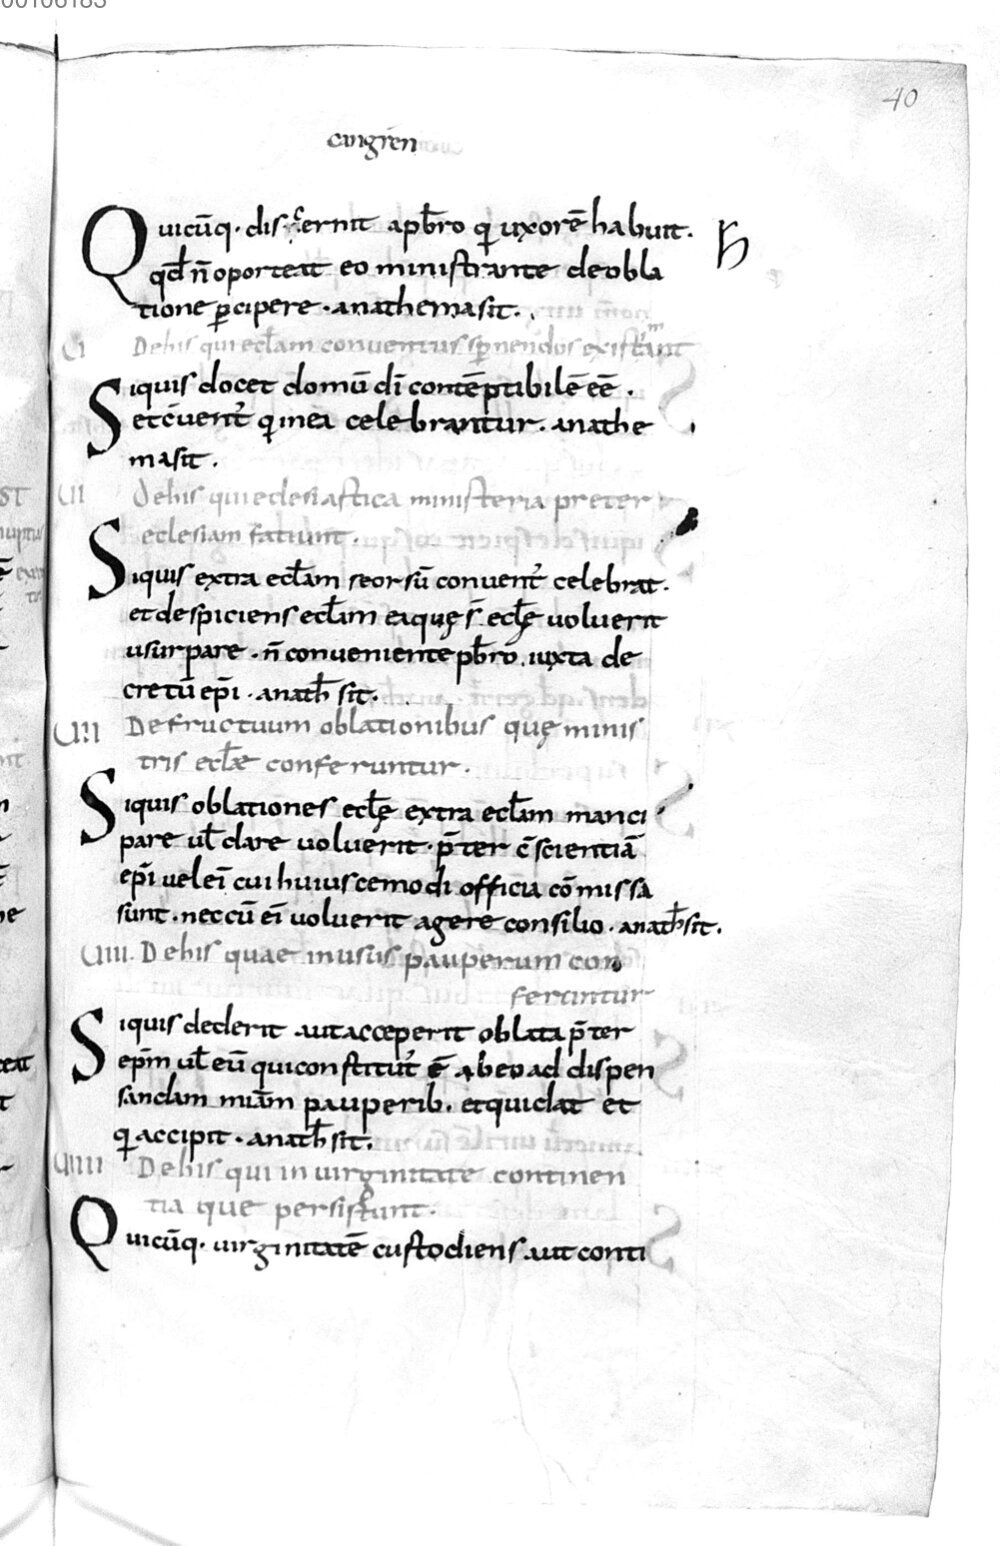 00106183
40
cangrēn
Quicūq· discernit a pb̄ro qi uxorē habuit.
qd̄ n̄ oporteat eo ministrante de obla
tione ꝑcipere · anathema sit.
UI De his qui ecl̄am conventus spernendos existimant
Siquis docet domū dī contēptibilē eē .
et cv̄ent' qi in eā celebrantur. anathe
ma sit .
UII De his qui eclesiastica ministeria preter
eclesiam fatiunt .
Siquis extra ecl̄am seorsū convent' celebrat.
et despiciens ecl̄am eaque s̄ ecl̄ę voluerit
usurpare . n̄ conveniente pb̄rō iuxta de
cretū ep̄i . anath̄ sit.
UIII De fructuum oblationibus quę minis
tris ecl̄ae conferuntur .
Siquis oblationes ecl̄ę extra ecl̄am manci
pare ul̄ dare voluerit . p̄ter c̄scientiā
ep̄i vel eī cui huiuscemodi officia cōmissa
sunt . nec cū eī voluerit agere consilio . anath̄ sit .
UIIII. De his quae in usus pauperum con
feruntur
Siquis dederit aut acceperit oblata p̄ter
ep̄m ul̄ eū qui constitut' ē ab eo ad dispen
sandam miām pauperib. et qui dat et
qi accipit . anath̄ sit.
UIIII De his qui in virginitate continen
tia que persistunt .
Quicūq. virginitatē custodiens aut conti